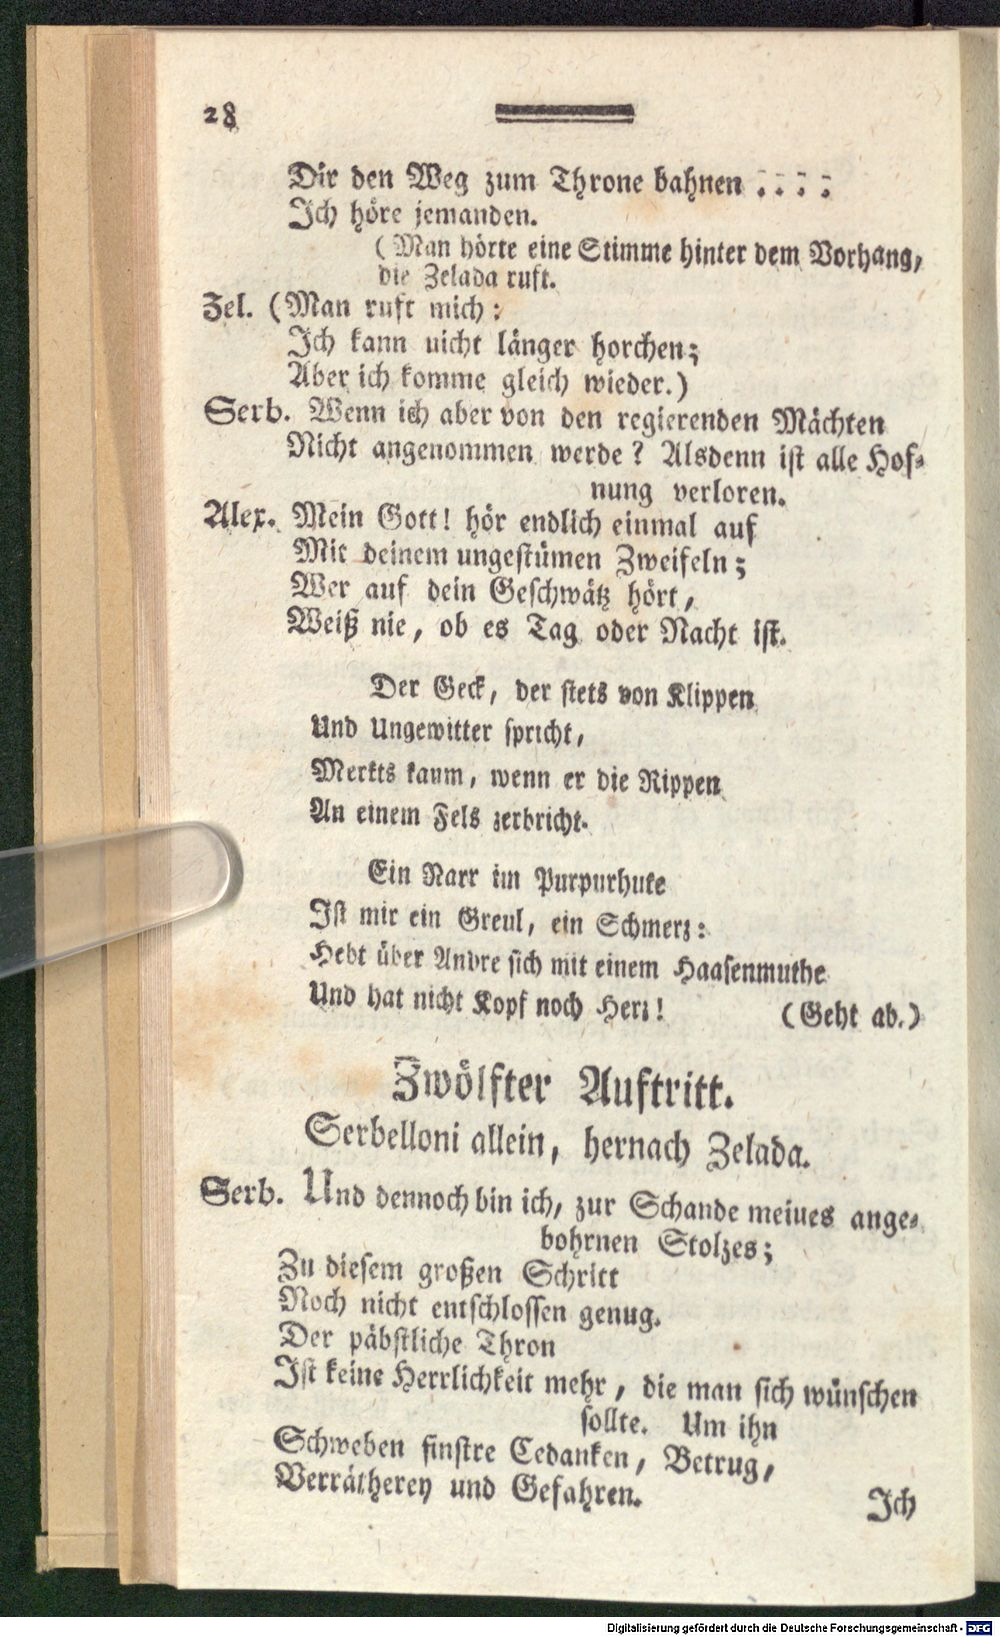 28
Dir den Weg zum Throne bahnen : : : :
Ich höre jemanden.
(Man hörte eine Stimme hinter dem Vorhang,
die Zelada ruft.
Zel. (Man ruft mich:
Ich kann nicht länger horchen;
Aber ich komme gleich wieder.)
Serb. Wenn ich aber von den regierenden Mächten
Nicht angenommen werde? Alsdenn ist alle Hof-
nung verloren.
Alex. Mein Gott! hör endlich einmal auf
Mit deinem ungestümen Zweifeln;
Wer auf dein Geschwätz hört,
Weiß nie, ob es Tag oder Nacht ist.
Der Geck, der stets von Klippen
Und Ungewitter spricht,
Merkts kaum, wenn er die Rippen
An einem Fels zerbricht.
Ein Narr im Purpurhute
Ist mir ein Greul, ein Schmerz:
Hebt über Andre sich mit einem Haasenmuthe
Und hat nicht Kopf noch Herz! (Geht ab.)
Zwölfter Auftritt.
Serbelloni allein, hernach Zelada.
Serb. Und dennoch bin ich, zur Schande meines ange-
bohrnen Stolzes;
Zu diesem großen Schritt
Noch nicht entschlossen genug.
Der päbstliche Thron
Ist keine Herrlichkeit mehr, die man sich wünschen
sollte. Um ihn
Schweben finstre Cedanken, Betrug,
Verrätherey und Gefahren.
Ich
Digitalisierung gefördert durch die Deutsche Forschungsgemeinschaft - DFG